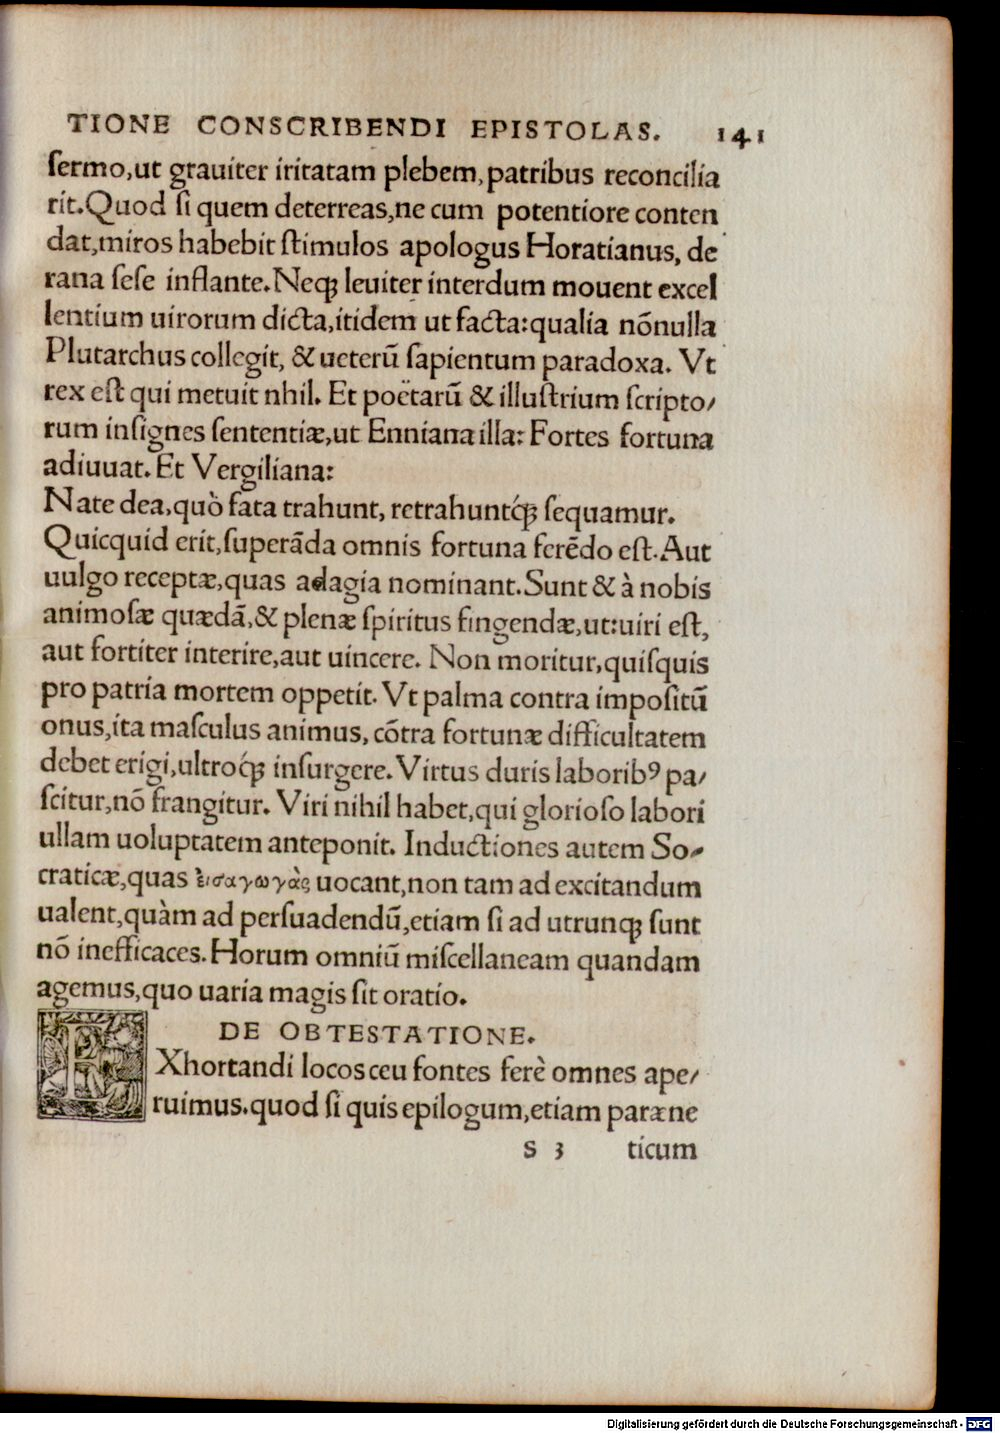 TIONE CONSCRIBENDI EPISTOLAS. 141
ſermo,ut grauiter iritatam plebem,patribus reconcilia
rit.Quod ſi quem deterreas,ne cum potentiore conten
dat,miros habebit ſtimulos apologus Horatianus, de
rana ſeſe inflante.Neqꝫ leuiter interdum mouent excel
lentium uirorum dicta,itidem ut facta:qualia nõnulla
Plutarchus collegit, & ueterũ ſapientum paradoxa. Vt
rex eſt qui metuit nhil. Et poëtarũ & illuſtrium ſcripto/
rum inſignes ſententiæ,ut Enniana illa: Fortes fortuna
adiuuat. Et Vergiliana:
Nate dea,quò fata trahunt, retrahuntq́ꝫ ſequamur.
Quicquid erit,ſuperãda omnis fortuna ferẽdo eſt.Aut
uulgo receptæ,quas adagia nominant.Sunt & à nobis
animoſæ quædã,& plenæ ſpiritus fingendæ,ut:uiri eſt,
aut fortiter interire,aut uincere. Non moritur,quiſquis
pro patria mortem oppetit. Vt palma contra impoſitũ
onus,ita maſculus animus, cõtra fortunæ difficultatem
debet erigi,ultroq́ꝫ inſurgere. Virtus duris laboribꝰ pa/
ſcitur,nõ frangitur. Viri nihil habet,qui glorioſo labori
ullam uoluptatem anteponit. Inductiones autem So/
craticæ,quas ἐισαγωγὰς uocant,non tam ad excitandum
ualent,quàm ad perſuadendũ,etiam ſi ad utrunqꝫ ſunt
nõ inefficaces. Horum omniũ miſcellaneam quandam
agemus,quo uaria magis ſit oratio.
DE OBTESTATIONE.
EXhortandi locos ceu fontes ferè omnes ape/
ruimus.quod ſi quis epilogum,etiam paræne
S 3 ticum
Digitalisierung gefördert durch die Deutsche Forschungsgemeinschaft - DFG